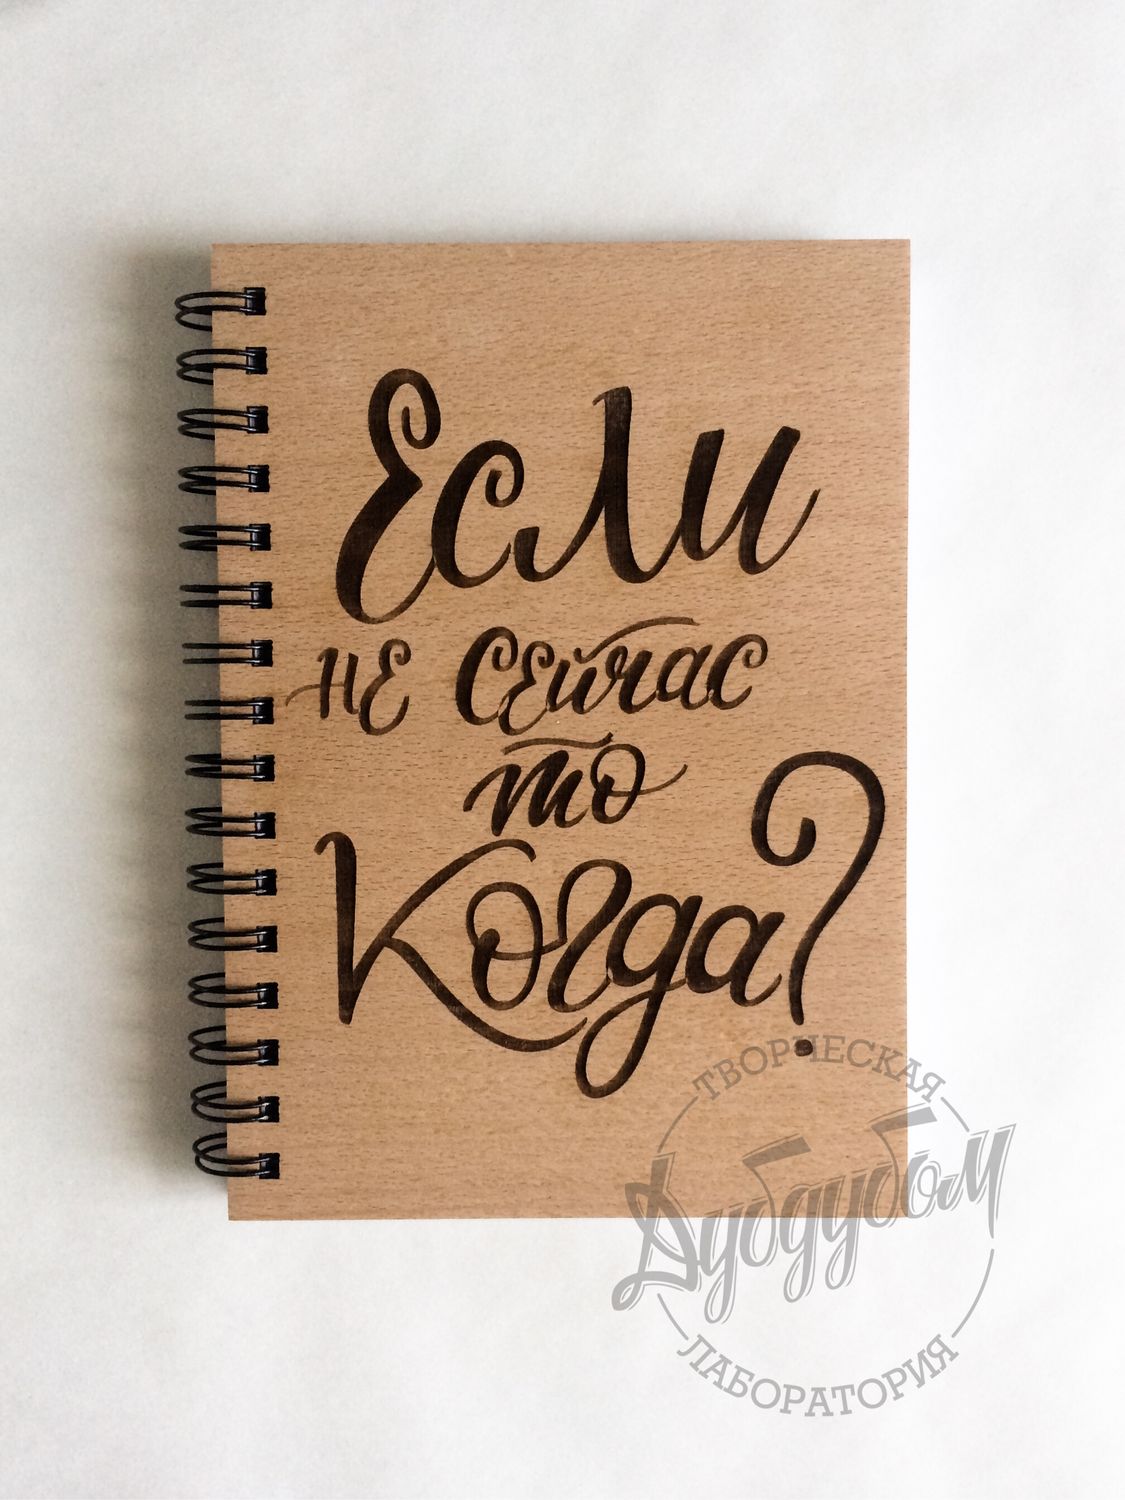 Если
не сейчас
то
Когда?
ТВОРЧЕСКАЯ
Дубдубом
ЛАБОРАТОРИЯ